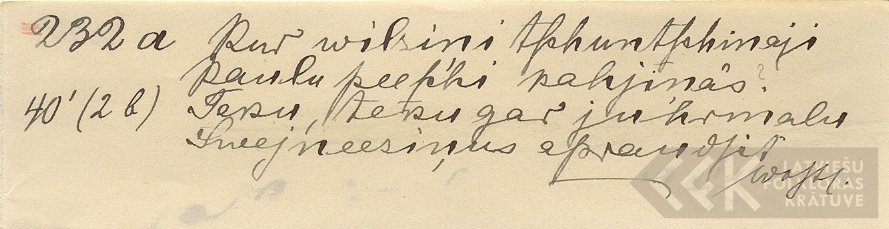 232 a Kur wilzini tschuntschinaji
Kaulu peeschi kahjinās?
40' (2 b) Teku, teku gar juhrmalu
Swejneezinus apraudsit
LATVIEŠU
FOLKLORAS
KRĀTUVE